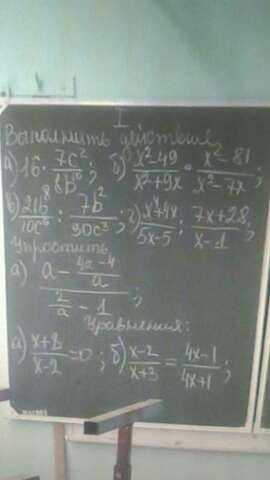 I
Выполнить действия
а) 16 · 7c²/8b⁶; б) x²-49/x²+9x · x²-81/x²-7x;
в) 21b⁸/10c⁶ : 7b²/30c³; г) x²+4x/5x-5 : 7x+28/x-1;
Упростить
а) (a - 4a-4/a)/(2/a - 1);
Уравнения:
а) x+8/x-2 = 0; б) x-2/x+3 = 4x-1/4x+1;